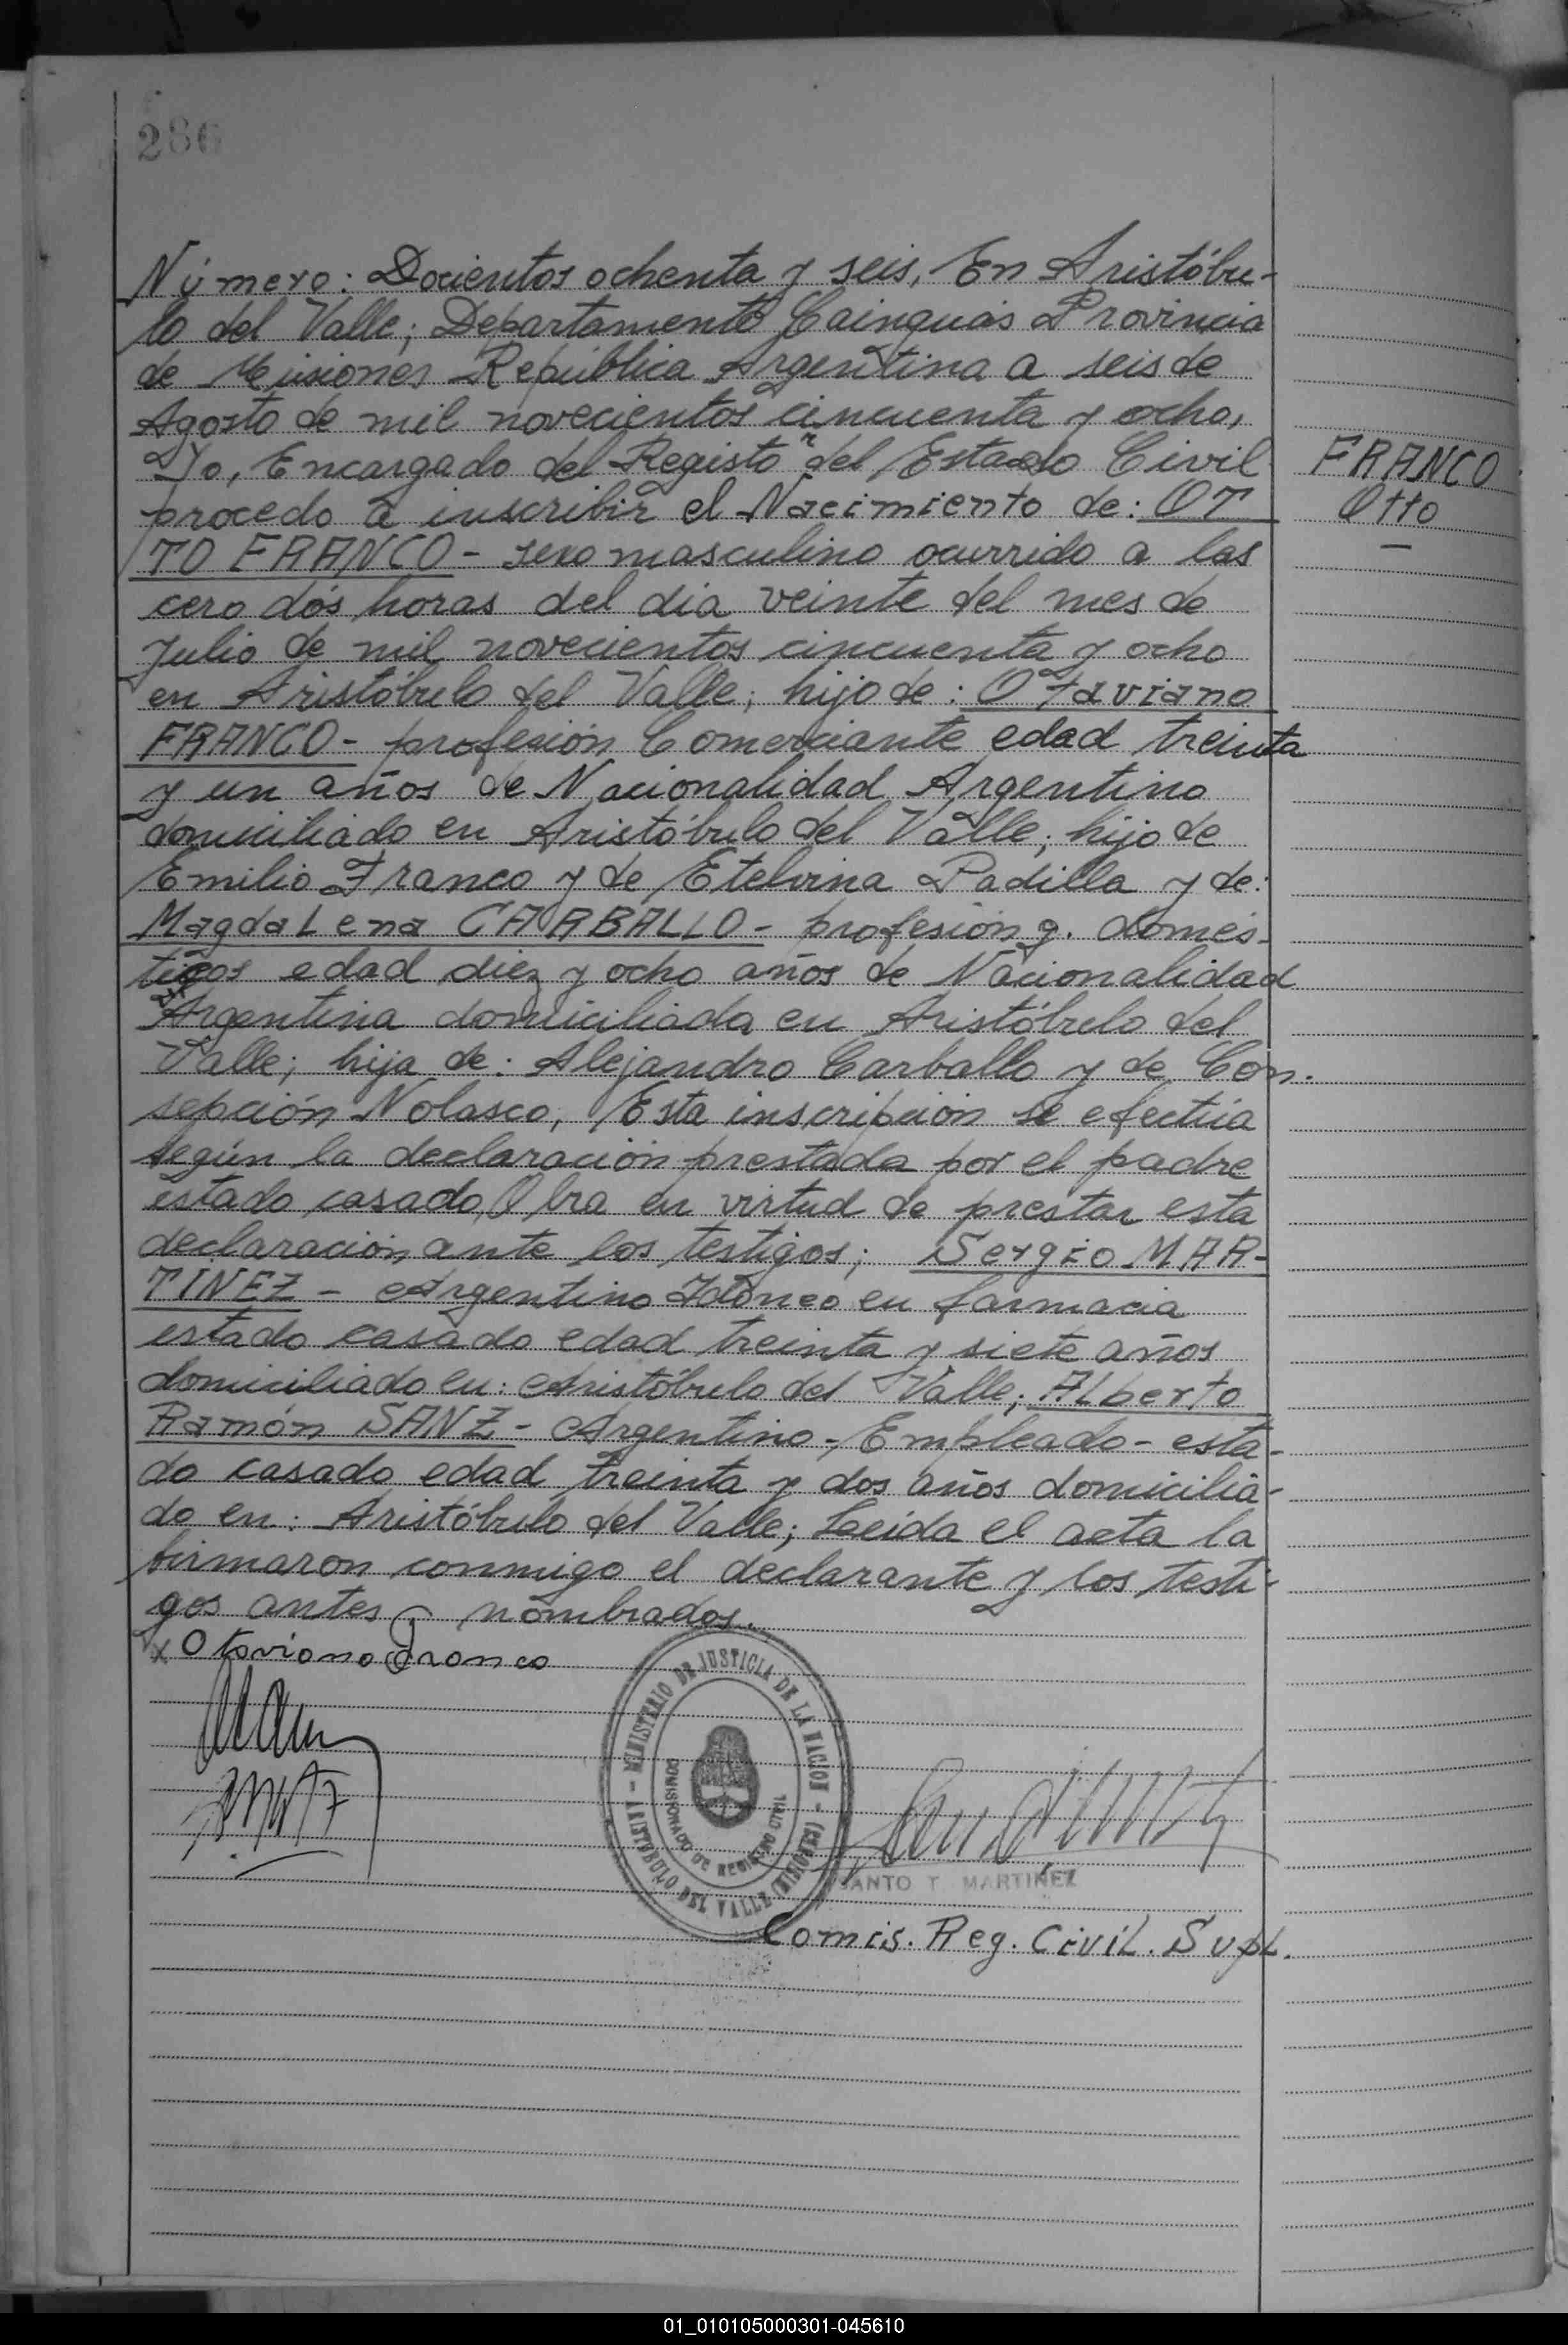 286
Número: Docientos ochenta y seis, En Aristóbu-
lo del Valle; Departamento Cainguás Provincia
de Misiones República Argentina a seis de
Agosto de mil novecientos cincuenta y ocho,
Yo, Encargado del Registo "r" del Estado Civil
FRANCO
procedo a inscribir el Nacimiento de: OT
Otto
TO FRANCO - sexo masculino ocurrido a las
cero dós horas del dia veinte del mes de
Julio de mil novecientos cincuenta y ocho
en Aristóbulo del Valle; hijo de: OTaviano
FRANCO - profesión Comerciante edad treinta
y un años de Nacionalidad Argentino
domiciliado en Aristóbulo del Valle; hijo de
Emilio Franco y de Etelvina Padilla y de:
MagdaLena CARBALLO - profesión q. domés-
ticos edad diez y ocho años de Nacionalidad
Argentina domiciliada en Aristóbulo del
Valle; hija de: Alejandro Carballo y de Con-
sepción Nolasco, Esta inscripción se efectúa
según la declaración prestada por el padre
estado casado, Obra en virtud de prestar esta
declaración ante los testigos; Sergio MAR-
TINEZ - Argentino Idóneo en farmacia
estado casado edad treinta y siete años
domiciliado en: Aristóbulo del Valle; ALberto
Ramón SANZ - Argentino - Empleado - esta-
do casado edad treinta y dos años domicilia-
do en: Aristóbulo del Valle; Leida el acta la
firmaron conmigo el declarante y los testi-
gos antes nombrados.
x Otaviano Franco
MINISTERIO DE JUSTICIA DE LA NACION - ARISTOBULO DEL VALLE (MISIONES)
COMISIONADO DE REGISTRO CIVIL
SANTO T. MARTINEZ
Comis. Reg. Civil. Supl.
01_010105000301-045610